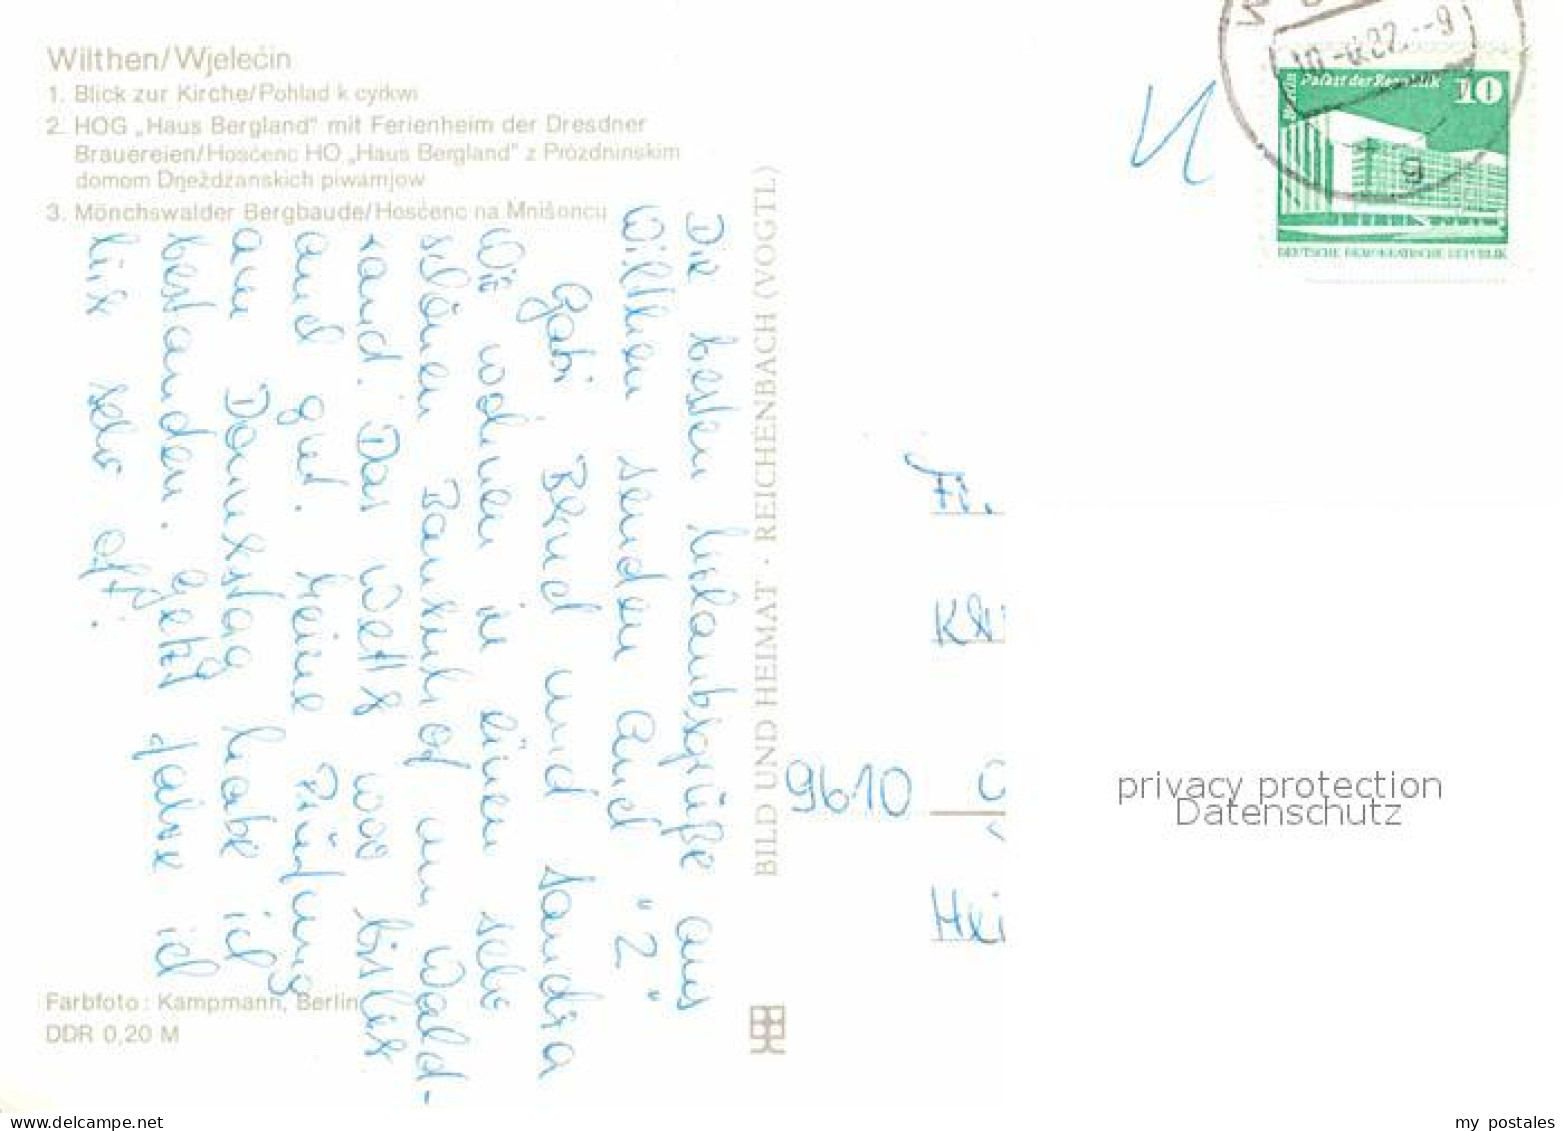 Wilthen/Wjelećin
1. Blick zur Kirche/Pohlad k cyrkwi
2. HOG „Haus Bergland" mit Ferienheim der Dresdner
Brauereien/Hosćenc HO „Haus Bergland" z Prózdninskim
domom Drježdźanskich piwarnjow
3. Mönchswalder Bergbaude/Hosćenc na Mnišoncu
Die besten Urlaubsgrüße aus
Wilthen senden Euch "2"
Gabi Bernd und Sandra
Wir wohnen in einen sehr
schönen Bauernhof am Wald-
rand. Das Wett war bisher
auch gut. Meine Prüfung
am Donnerstag habe ich
bestanden. Jetzt fahre ich
sehr oft.
Farbfoto: Kampmann, Berlin
DDR 0,20 M
BILD UND HEIMAT · REICHENBACH (VOGTL)
Berlin Palast der Republik 10
DEUTSCHE DEMOKRATISCHE REPUBLIK
Fr.
9610
privacy protection
Datenschutz
my postales